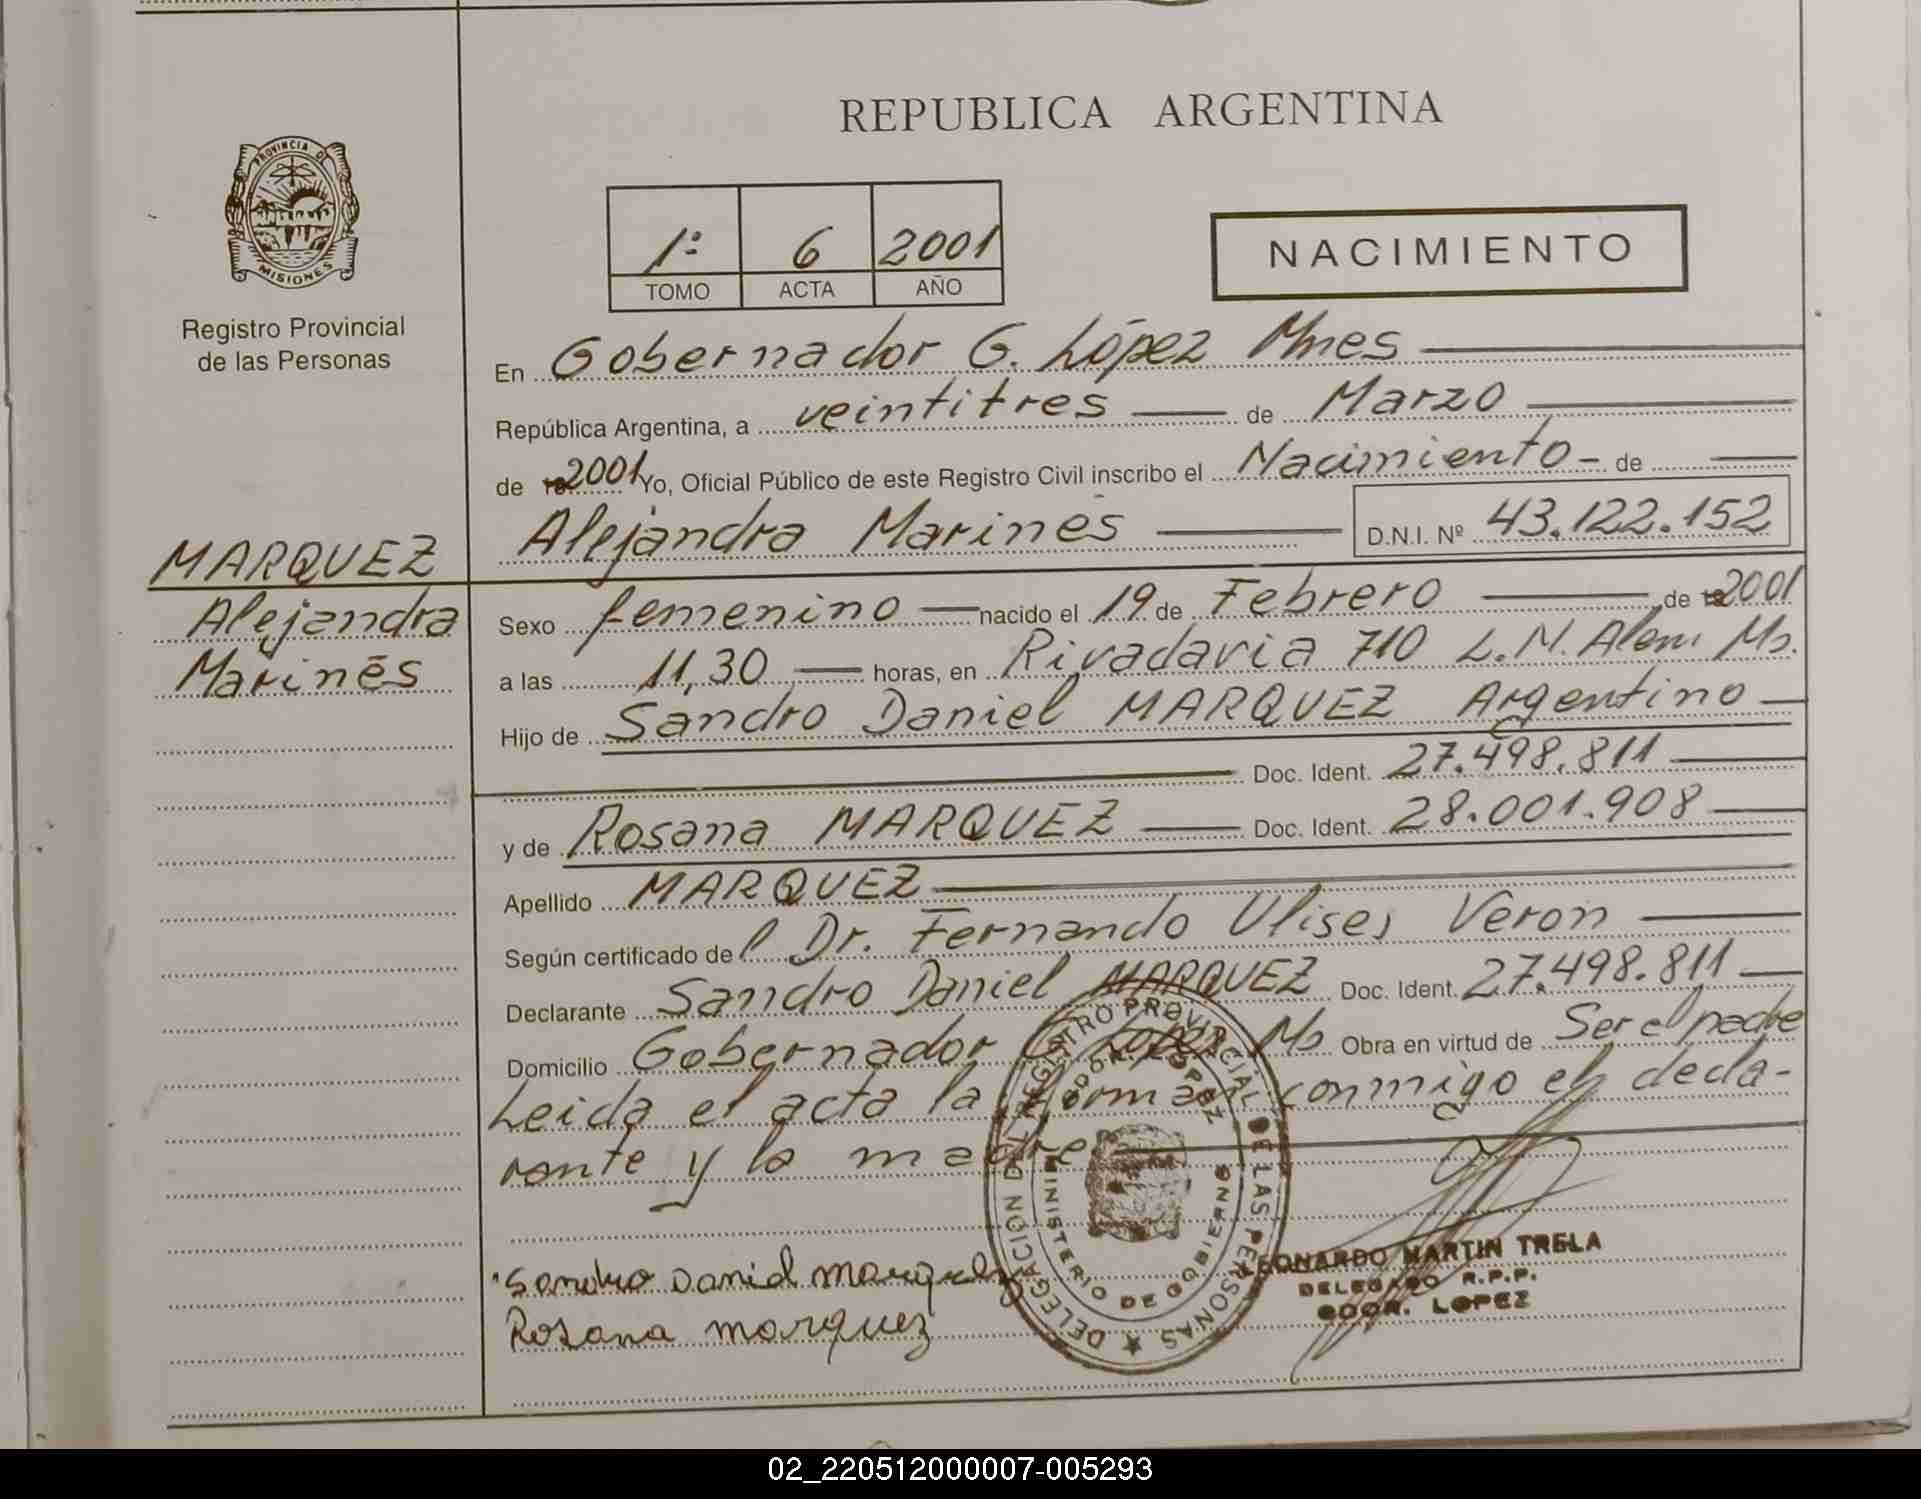 REPUBLICA ARGENTINA
PROVINCIA DE
MISIONES
Registro Provincial
de las Personas
1º 6 2001
TOMO ACTA AÑO
NACIMIENTO
En Gobernador G. López Mnes
República Argentina, a veintitres de Marzo
de 2001 Yo, Oficial Público de este Registro Civil inscribo el Nacimiento - de
Alejandra Marinés D.N.I. Nº 43.122.152
MARQUEZ
Alejandra
Marinés
Sexo femenino nacido el 19 de Febrero de 2001
a las 11,30 horas, en Rivadavia 710 L.N. Alem Ms.
Hijo de Sandro Daniel MARQUEZ Argentino
Doc. Ident. 27.498.811
y de Rosana MARQUEZ Doc. Ident. 28.001.908
Apellido MARQUEZ
Según certificado del Dr. Fernando Ulises Veron
Declarante Sandro Daniel MARQUEZ Doc. Ident. 27.498.811
Domicilio Gobernador G. López Ms Obra en virtud de Ser el padre
Leida el acta la firman conmigo el decla-
rante y la madre
DELEGACION DEL REGISTRO PROVINCIAL DE LAS PERSONAS
GDOR. LOPEZ
MINISTERIO DE GOBIERNO
Sandro Daniel Marquez
Rosana Marquez
LEONARDO MARTIN TRELA
DELEGADO R.P.P.
GDOR. LOPEZ
02_220512000007-005293